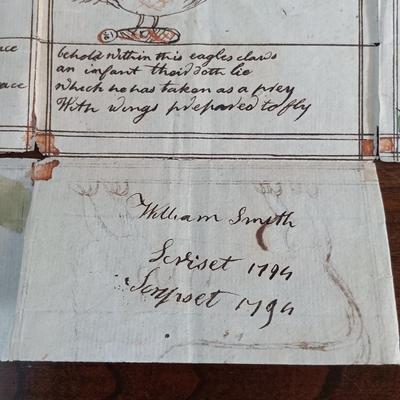 ace
ace
behold within this eagles claws
an infant their doth lie
which he has taken as a prey
With wings prepared to fly
William Smith
Scripset 1794
Scripset 1794